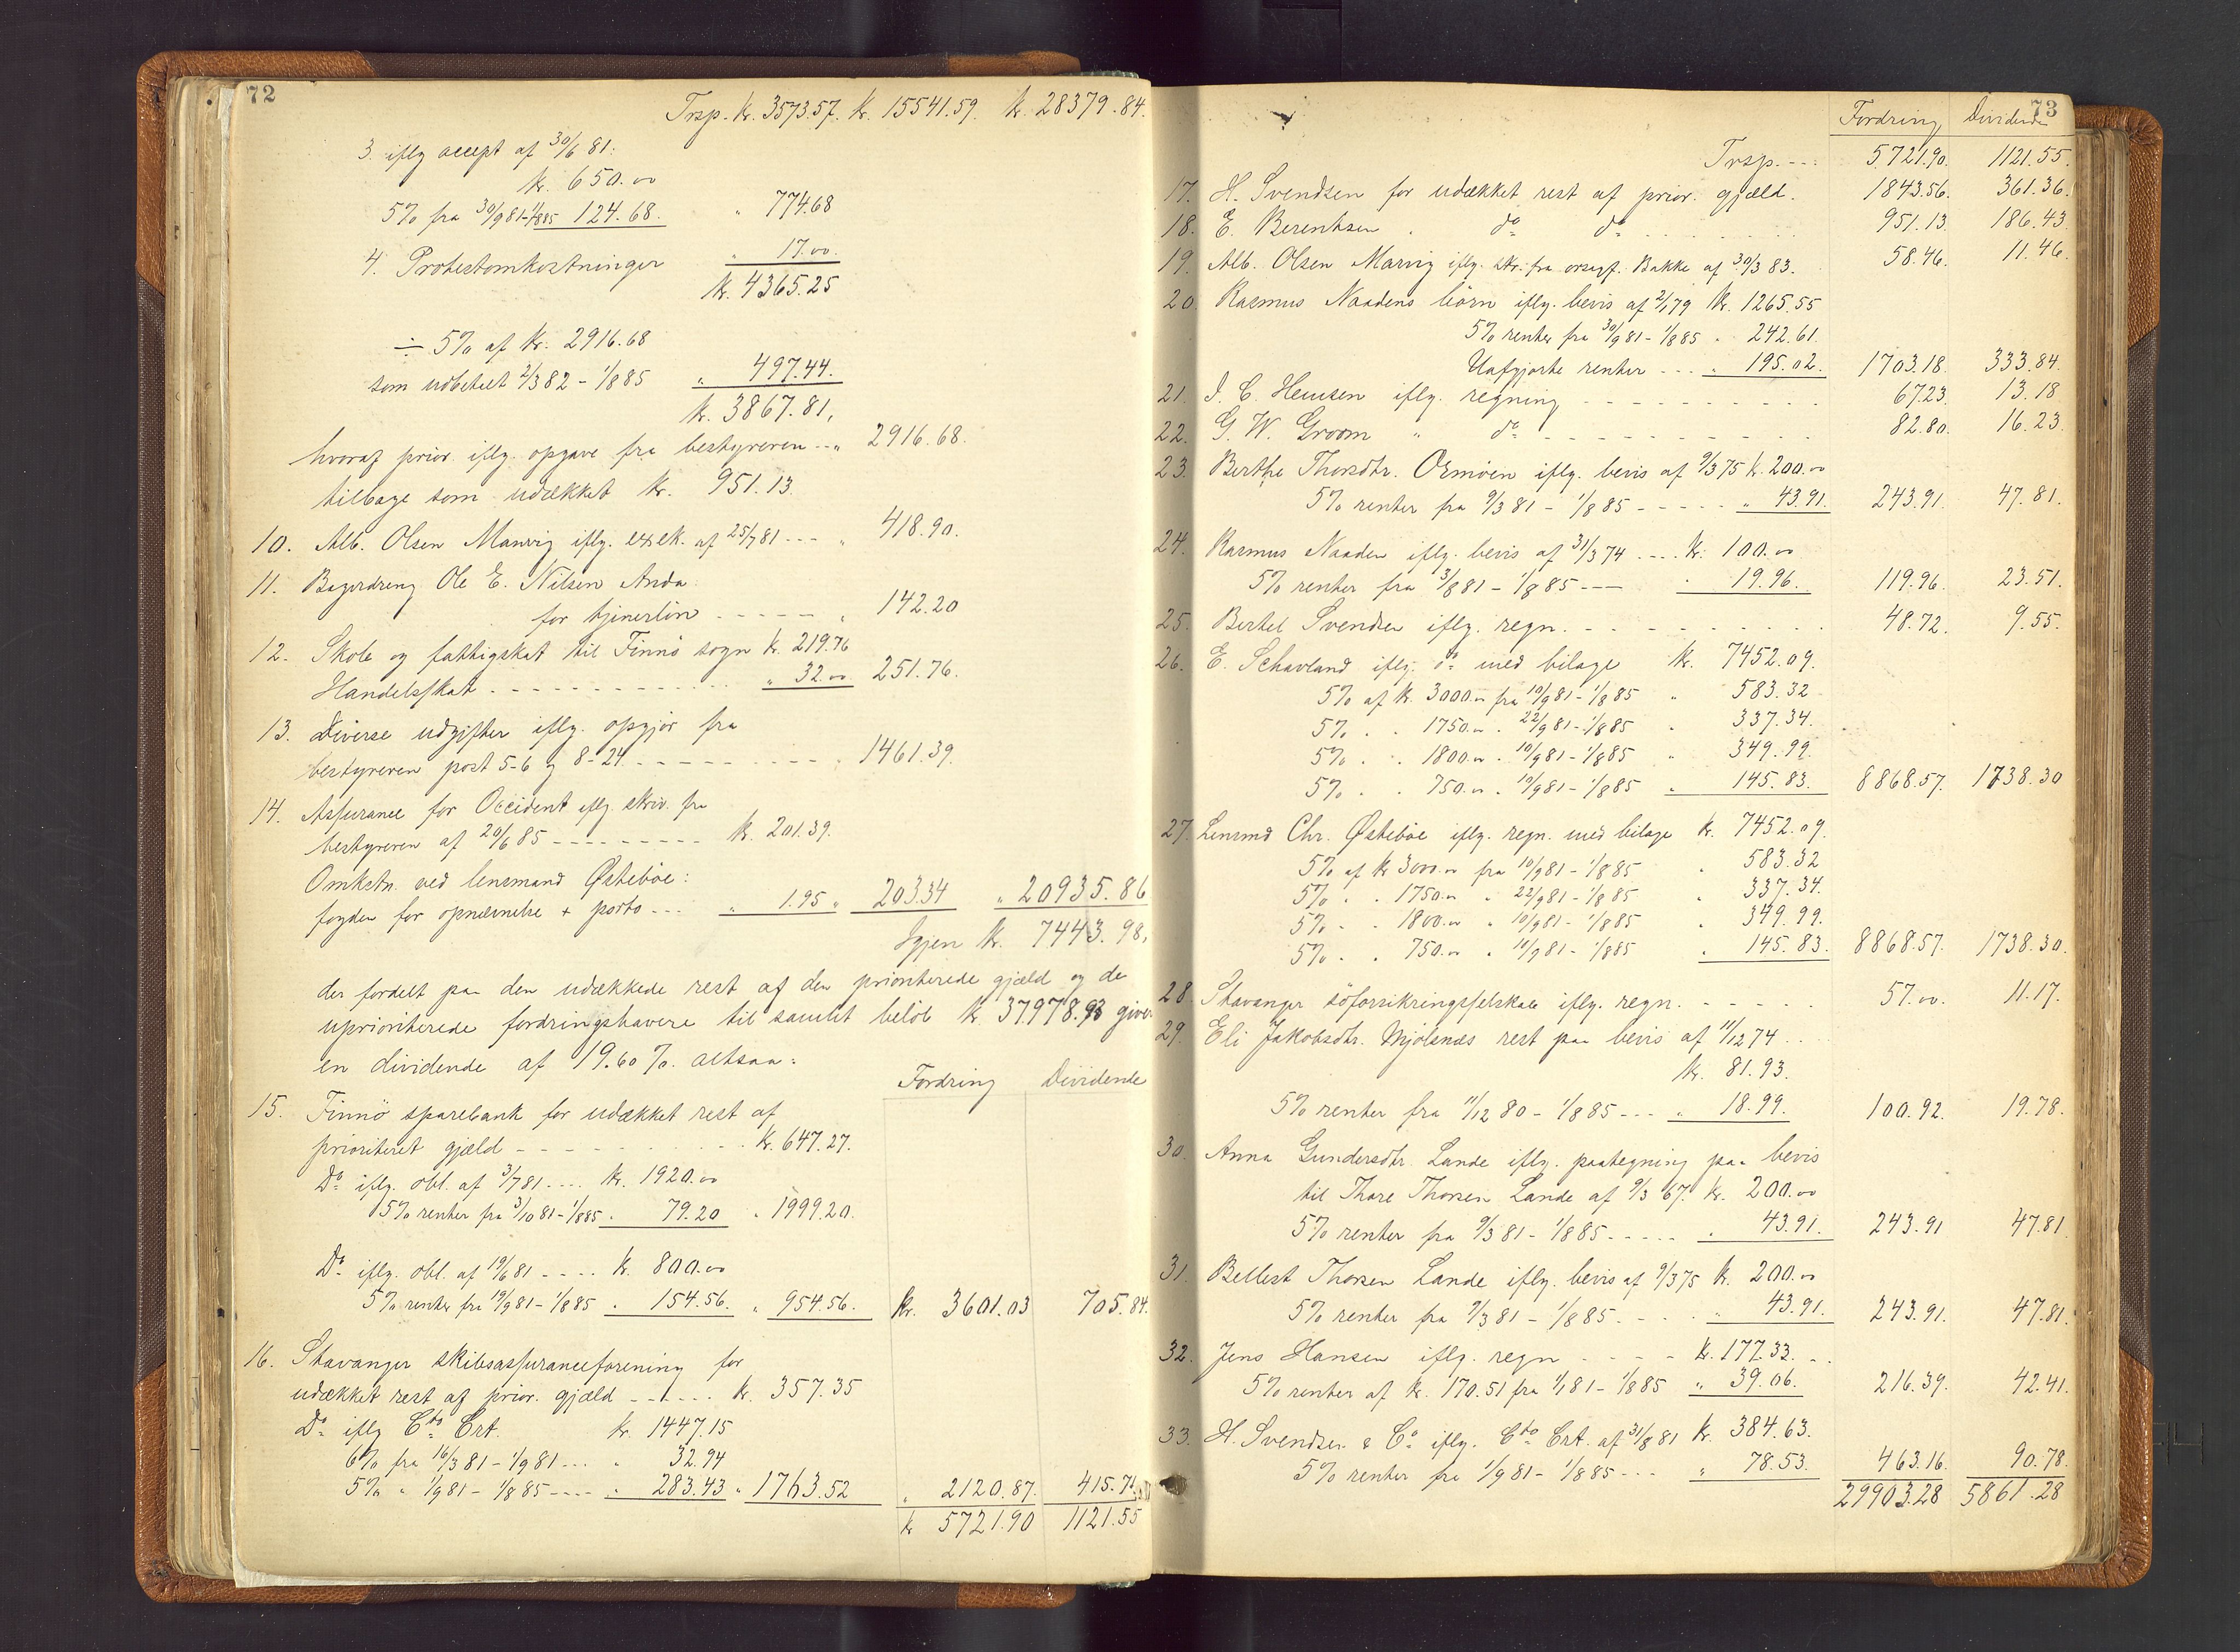 72
Trsp. Kr. 3573.57. Kr. 15541.59. Kr. 28379.84.
3. iflg accept af 30/6 81:
Kr. 650.00
5% fra 30/9 81-1/8 85 124.68. " 774.68
4. Protestomkostninger " 17.00
Kr. 4365.25
÷ 5% af Kr. 2916.68
som udbetalt 2/3 82 - 1/8 85 " 497.44.
Kr. 3867.81,
hvoraf prior. iflg. opgave fra bestyreren -- " 2916.68.
tilbage som udækket Kr. 951.13.
10. Alb. Olsen Marvig iflg. exek. af 25/7 81 --- " 418.90.
11. Ole E. Nilsen Anda
for tjenerløn - - - - - " 142.20
12. Skole og fattigskat til Finnø sogn Kr. 219.76
Handelsskat - - - - - " 32.00 251.76.
13. Diverse udgifter iflg. opgjør fra
bestyreren post 5-6 og 8-24 - - - - - 1461.39.
14. Assurance for Occident iflg. skriv. fra
bestyreren af 20/6 85 - - - - - Kr. 201.39.
Omkstn. ved lensmand Østebøe:
fogden for opnævnelse + porto - - - " 1.95 " 203.34 " 20935.86
Igjen Kr. 7443.98,
der fordelt paa den udækkede rest af den prioriterede gjæld og de
uprioriterede fordringshavere til samlet beløb Kr. 37978.93 giver
en dividende af 19.60 %. altsaa:
Fordring Dividende
15. Finnø sparebank for udækket rest af
prioriteret gjæld - - - - - Kr. 647.27.
Do iflg. obl. af 3/7 81 .... Kr. 1920.00
5% renter fra 3/10 81-1/8 85 . 79.20 " 1999.20.
Do iflg. obl. af 19/6 81 - - - - Kr. 800.00
5% renter fra 19/9 81-1/8 85 . 154.56. " 954.56. Kr. 3601.03 705.84.
16. Stavanger skibsassuranceforening for
udækket rest af prior. gjæld - - - - Kr. 357.35
Do iflg Cto Crt. Kr. 1447.15
6% fra 16/3 81 - 1/9 81 ... " 32.94
5% " 1/9 81 - 1/8 85 ---- " 283.43 " 1763.52 " 2120.87. 415.71
Kr 5721.90 1121.55
73
Fordring Dividende
Trsp. --- 5721.90. 1121.55.
17. H. Svendsen for udækket rest af prior. gjæld. 1843.56. 361.36.
18. E. Berentsen " do do 951.13. 186.43
19. Alb. Olsen Marvig iflg. skr. fra orsagf. Bakke af 30/3 83. 58.46. 11.46.
20. Rasmus Naadens börn iflg. bevis af 2/1 79 Kr. 1265.55
5% renter fra 30/9 81 - 1/8 85 " 242.61.
Uafgjorte renter - - - " 195.02. 1703.18. 333.84.
21. J. C. Hemsen iflg. regning - - - - - 67.23. 13.18
22. G. W. Groom " do - - - - - 82.80. 16.23.
23. Berthe Thorsdtr. Ormøen iflg. bevis af 9/3 75 Kr. 200.00
5% renter fra 9/3 81 - 1/8 85 - - - - - " 43.91. 243.91. 47.81.
24. Rasmus Naaden iflg. bevis af 31/3 74 .... Kr. 100.00
5% renter fra 3/8 81 - 1/8 85 --- " 19.96. 119.96. 23.51.
25. Bertel Svendsen iflg. regn. - - - - - 48.72. 9.55.
26. E. Schavland iflg. do med bilage Kr. 7452.09.
5% af Kr. 3000.00 fra 10/9 81 - 1/8 85 " 583.32
5% . . 1750.00 . 22/9 81 - 1/8 85 " 337.34.
5% . . 1800.00 . 10/9 81 - 1/8 85 " 349.99.
5% . . 750.00 . 10/9 81 - 1/8 85 " 145.83. 8868.57. 1738.30
27. Lensmd Chr. Østebøe iflg. regn. med bilage Kr. 7452.09.
5% af Kr 3000.00 fra 10/9 81 - 1/8 85 " 583.32
5% . . 1750.00 " 22/9 81 - 1/8 85 " 337.34.
5% . . 1800.00 " 10/9 81 - 1/8 85 " 349.99.
5% . . 750.00 " 10/9 81 - 1/8 85 " 145.83. 8868.57. 1738.30.
28. Stavanger söforsikringsselskab iflg. regn. - - - - - 57.00. 11.17.
29. Eli Jakobsdtr. Mjölsnæs rest paa bevis af 11/12 74 ..
Kr. 81.93.
5% renter fra 11/12 80 - 1/8 85 --- " 18.99. 100.92. 19.78.
30. Anna Gundersdtr. Lande iflg. paategning paa bevis
til Thore Thorsen Lande af 9/3 67. Kr. 200.00
5% renter fra 9/3 81 - 1/8 85 - - - - - " 43.91. 243.91 47.81
31. Bellest Thorsen Lande iflg. bevis af 9/3 75 Kr. 200.00
5% renter fra 9/3 81 - 1/8 85 - - - " 43.91. 243.91. 47.81.
32. Jens Hansen iflg. regn - - - - Kr. 177.33. - .
5% renter af Kr. 170.51 fra 1/1 81 - 1/8 85 " 39.06. 216.39. 42.41.
33. H. Svendsen & Co iflg. Cto Crt. af 31/8 81 Kr. 384.63.
5% renter fra 1/9 81 - 1/8 85 - - - " 78.53. 463.16. 90.78.
29903.28 5861.28